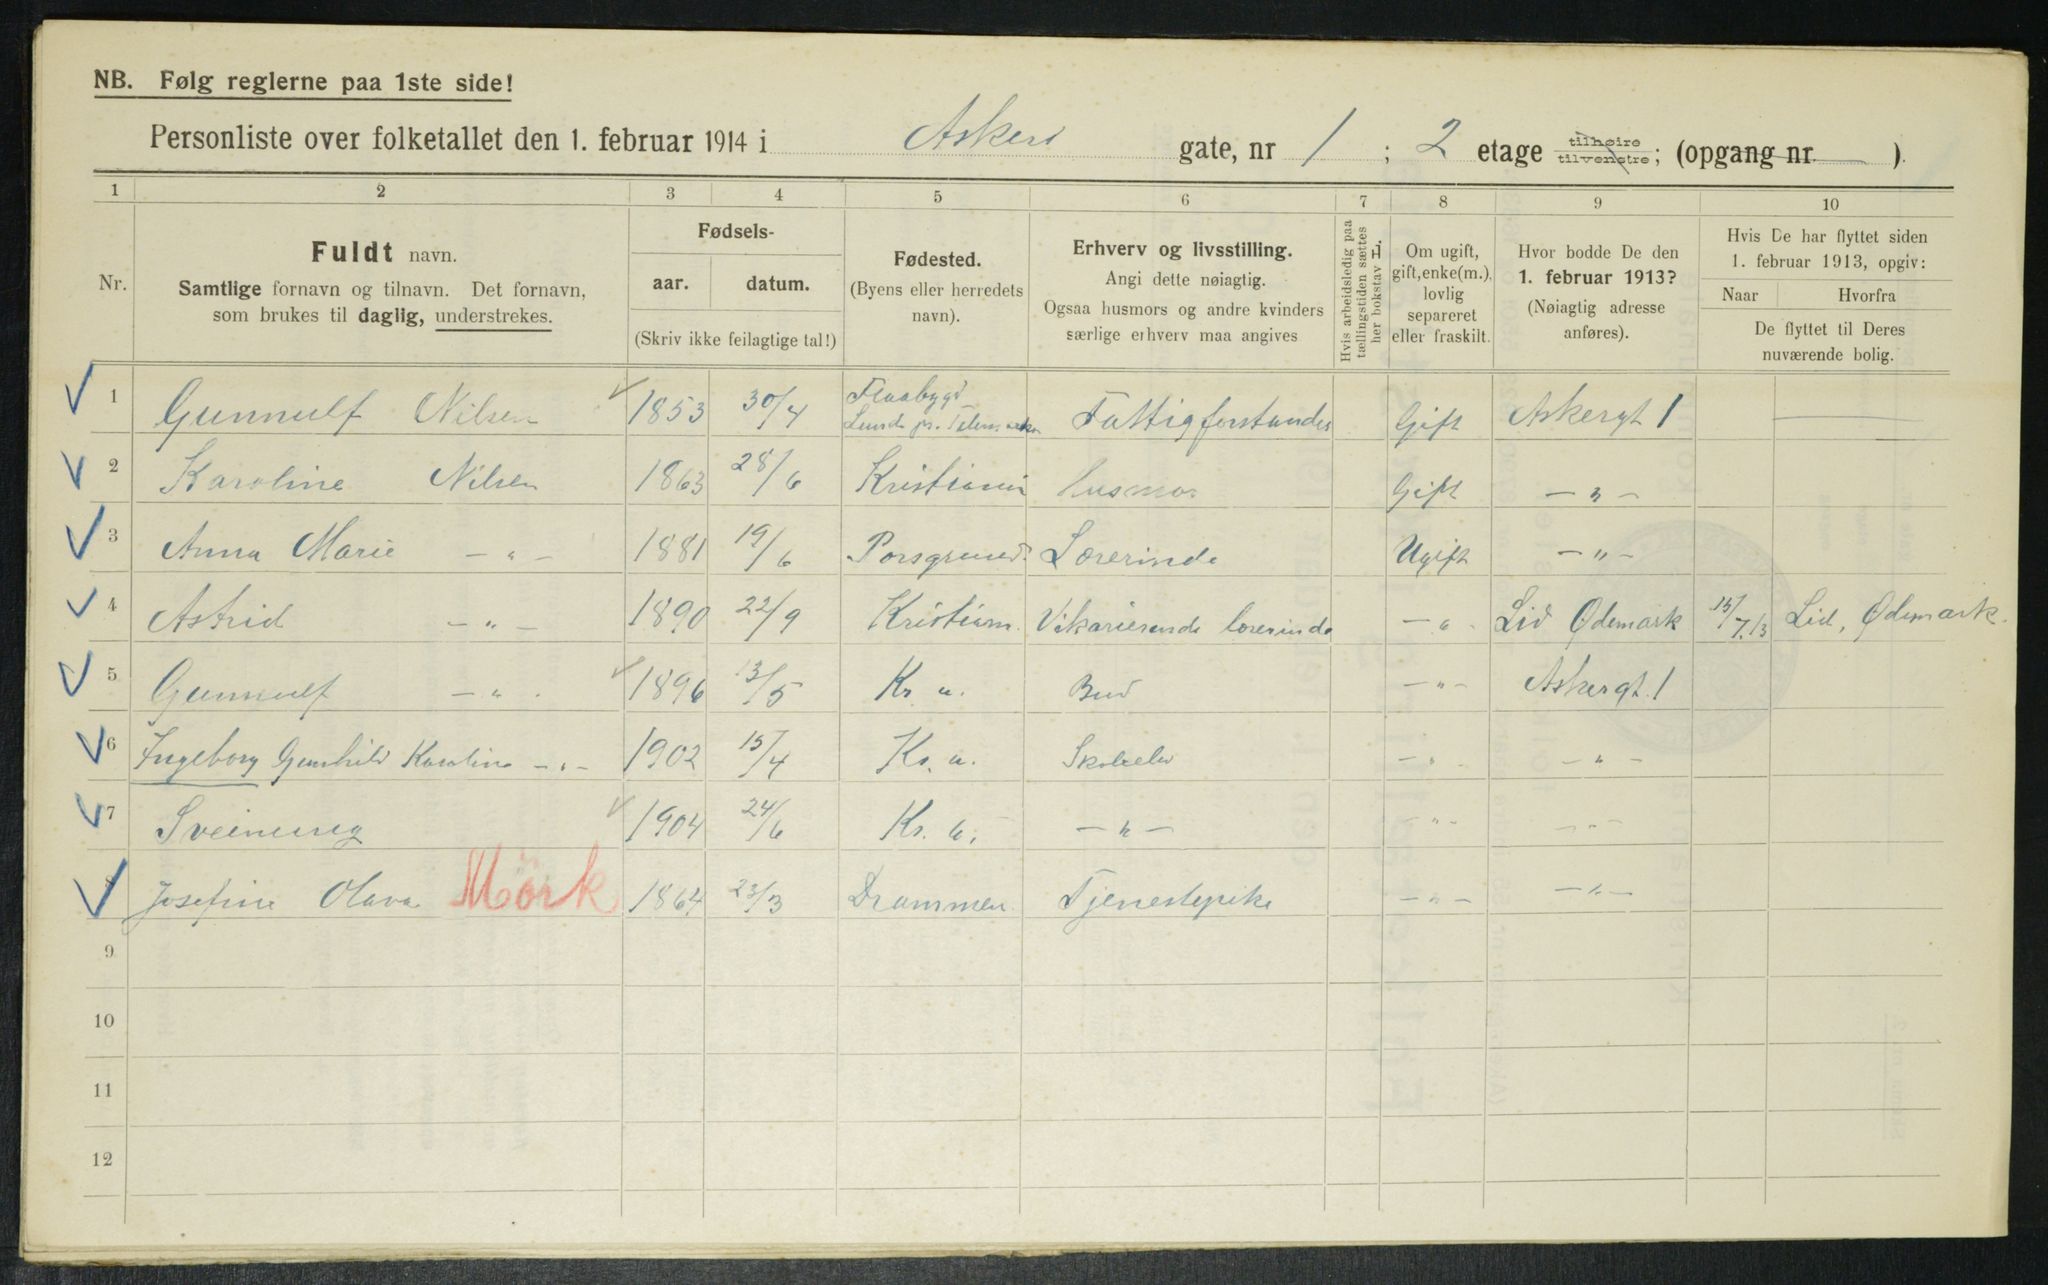 NB. Følg reglerne paa 1ste side!
Personliste over folketallet den 1. februar 1914 i Askers gate, nr 1 ; 2 etage tilhøire tilvenstre; (opgang nr. — ).
1 2 3 4 5 6 7 8 9 10
Nr.
Fuldt navn.
Samtlige fornavn og tilnavn. Det fornavn,
som brukes til daglig, understrekes.
Fødsels-
aar. datum.
(Skriv ikke feilagtige tal!)
Fødested.
(Byens eller herredets
navn).
Erhverv og livsstilling.
Angi dette nøiagtig.
Ogsaa husmors og andre kvinders
særlige erhverv maa angives
Hvis arbeidsledig paa
tællingstiden sættes
her bokstav L.
Om ugift,
gift, enke(m.),
lovlig
separeret
eller fraskilt.
Hvor bodde De den
1. februar 1913?
(Nøiagtig adresse
anføres).
Hvis De har flyttet siden
1. februar 1913, opgiv:
Naar Hvorfra
De flyttet til Deres
nuværende bolig.
1 Gunnulf Nilsen 1853 30/4 Flaabygd Lunde pr. Telemarken Fattigforstander Gift Askergt 1 —
2 Karoline Nilsen 1863 28/6 Kristiania Husmor Gift — " —
3 Anna Marie — " — 1881 19/6 Porsgrund Lærerinde Ugift — " —
4 Astrid — " — 1890 22/9 Kristiania Vikarierende lærerinde — " — Lid Ødemark 15/7.13 Lid, Ødemark.
5 Gunnulf — " — 1896 13/5 Kr. a. Bud — " — Askergt. 1
6 Ingeborg Gunhild Karoline — " — 1902 15/4 Kr. a. Skoleelev — " — — " —
7 Sveinung 1904 24/6 Kr. a. — " — — " — — " —
8 Josefine Olava Mörk 1864 23/3 Drammen Tjenestepike — " — — " —
9
10
11
12